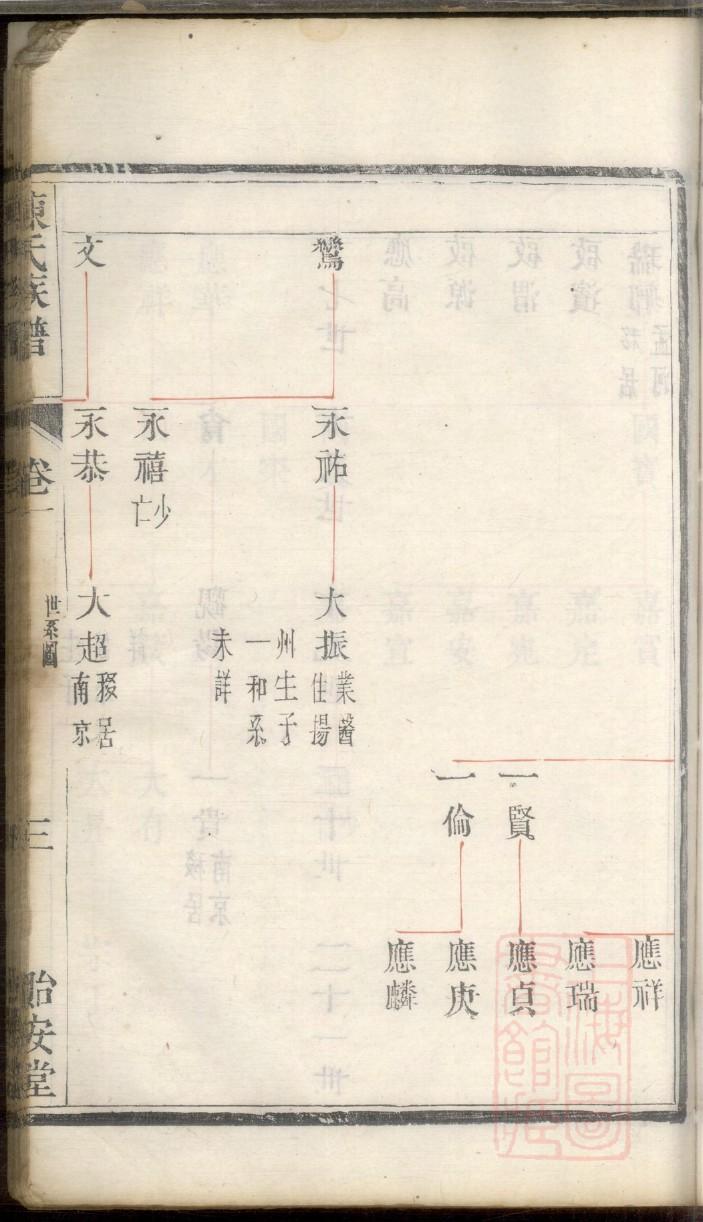 應祥
應瑞
一賢
應貞
一倫
應庚
應麟
鸞
永祐
大振
業醫
住揚
州生子
一和系
未詳
永禧
少亡
文
永恭
大超
移居
南京
陳氏族譜
卷一
世系圖
三
怡安堂